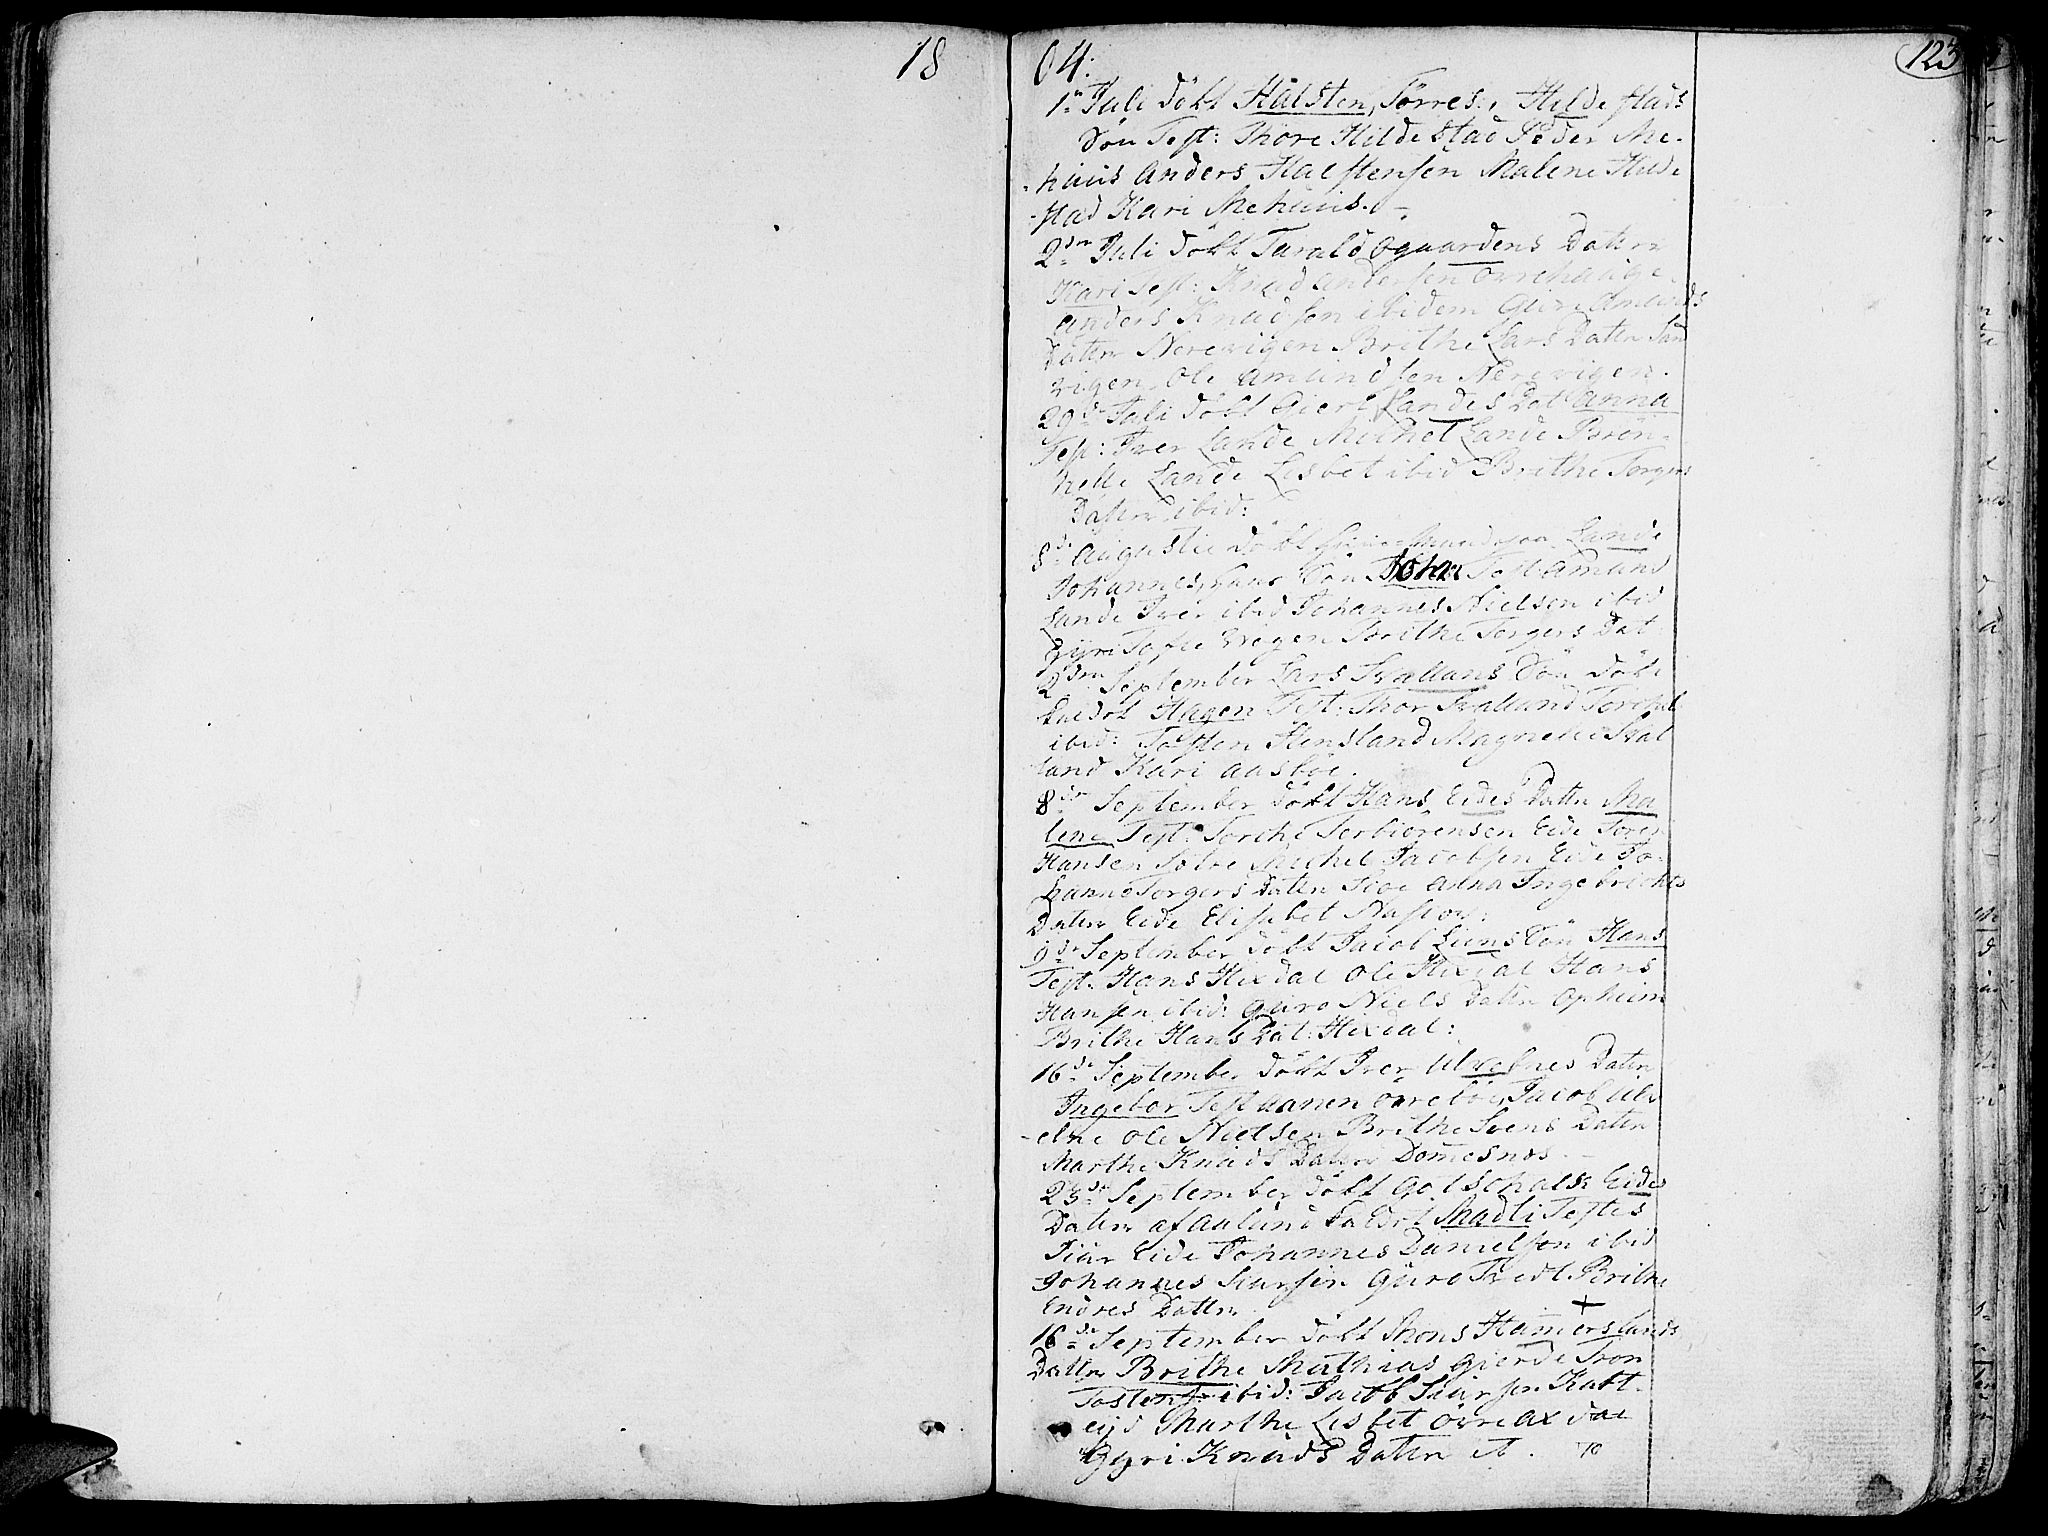 18 04:
123
1n Juli döbt Halsten, Törres Hildestads
Sön Test: Thore Hildestad Peder Me-
huus Anders Halstensen Malene Hilde
stad Kari Mehuus.
2den Juli döbt Tarald Ogaardens Datter
Kari Test: Knud Andersen Övrehauge
Anders Knudsen ibidem Guri Amunds
Datter Nerevigen Brithe Lars Datter San
vigen Ole Amundsen Nerevigen.
29de Juli döbt Giert Landes Dat Anna
Test: Iver Lande Michel Lande Brön-
helle Lande Lisbet ibid Brithe Torgers
Datter ibid:
8de Augustii döbt Lande
Johannes Sön Johan Test Amund
Lande Iver ibid Johannes Nielsen ibid
Gyri Tofte Vigen Brithe Torgers Dat
2den September Lars Svallans Sön döbt
kaldet Hagen Test: Thor Svalland Torchel
ibid: Tosten Stensland Magnele Sval
land Kari Aasböe.
8de September döbt Hans Eides Datter Ma
lene Test: Torche Torbiörensen Eide Soren
Hansen Michel Jacobsen Eide Jo-
hanne Torgers Datter Anna Ingebrichts
Datter Eide Elisabet
9de September döbt Jacob Lunns Sön Hans
Test: Hans Hixdal Ole Hixdal Hans
Hansen ibid: Guro Niels Datter Opheim
Brithe Hans Dat: Hixdal:
16de September döbt Iver Ulvelnes Datter
Ingebor Test Aanen Övreböe, Jacob Ulv
elne Ole Nielsen Brithe Svens Datter
Marthe Knuds Datter Domesnes.
23de September döbt Gotschalk Eides
Datter af Aalund kaldet Madli Testes
Siur Eide Johannes Danielsen ibid
Johannes Siursen Guro Tvedt. Brithe
Endres Datter
16de September döbt Mons Hamerslands
Datter Brithe Mathias Gierde Tron
Tostens: ibid: Jacob Siursen Katt-
eijd Marthe Lisbet Övre Axdal
Gyri Knuds Datter